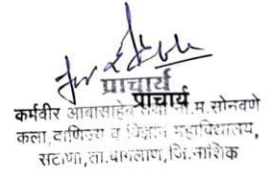 प्राचार्य
प्राचार्य
कर्मवीर आबासाहेब ना.म.सोनवणे
कला, वाणिज्य व विज्ञान महाविद्यालय,
सटाणा,ता.बागलाण,जि.नाशिक